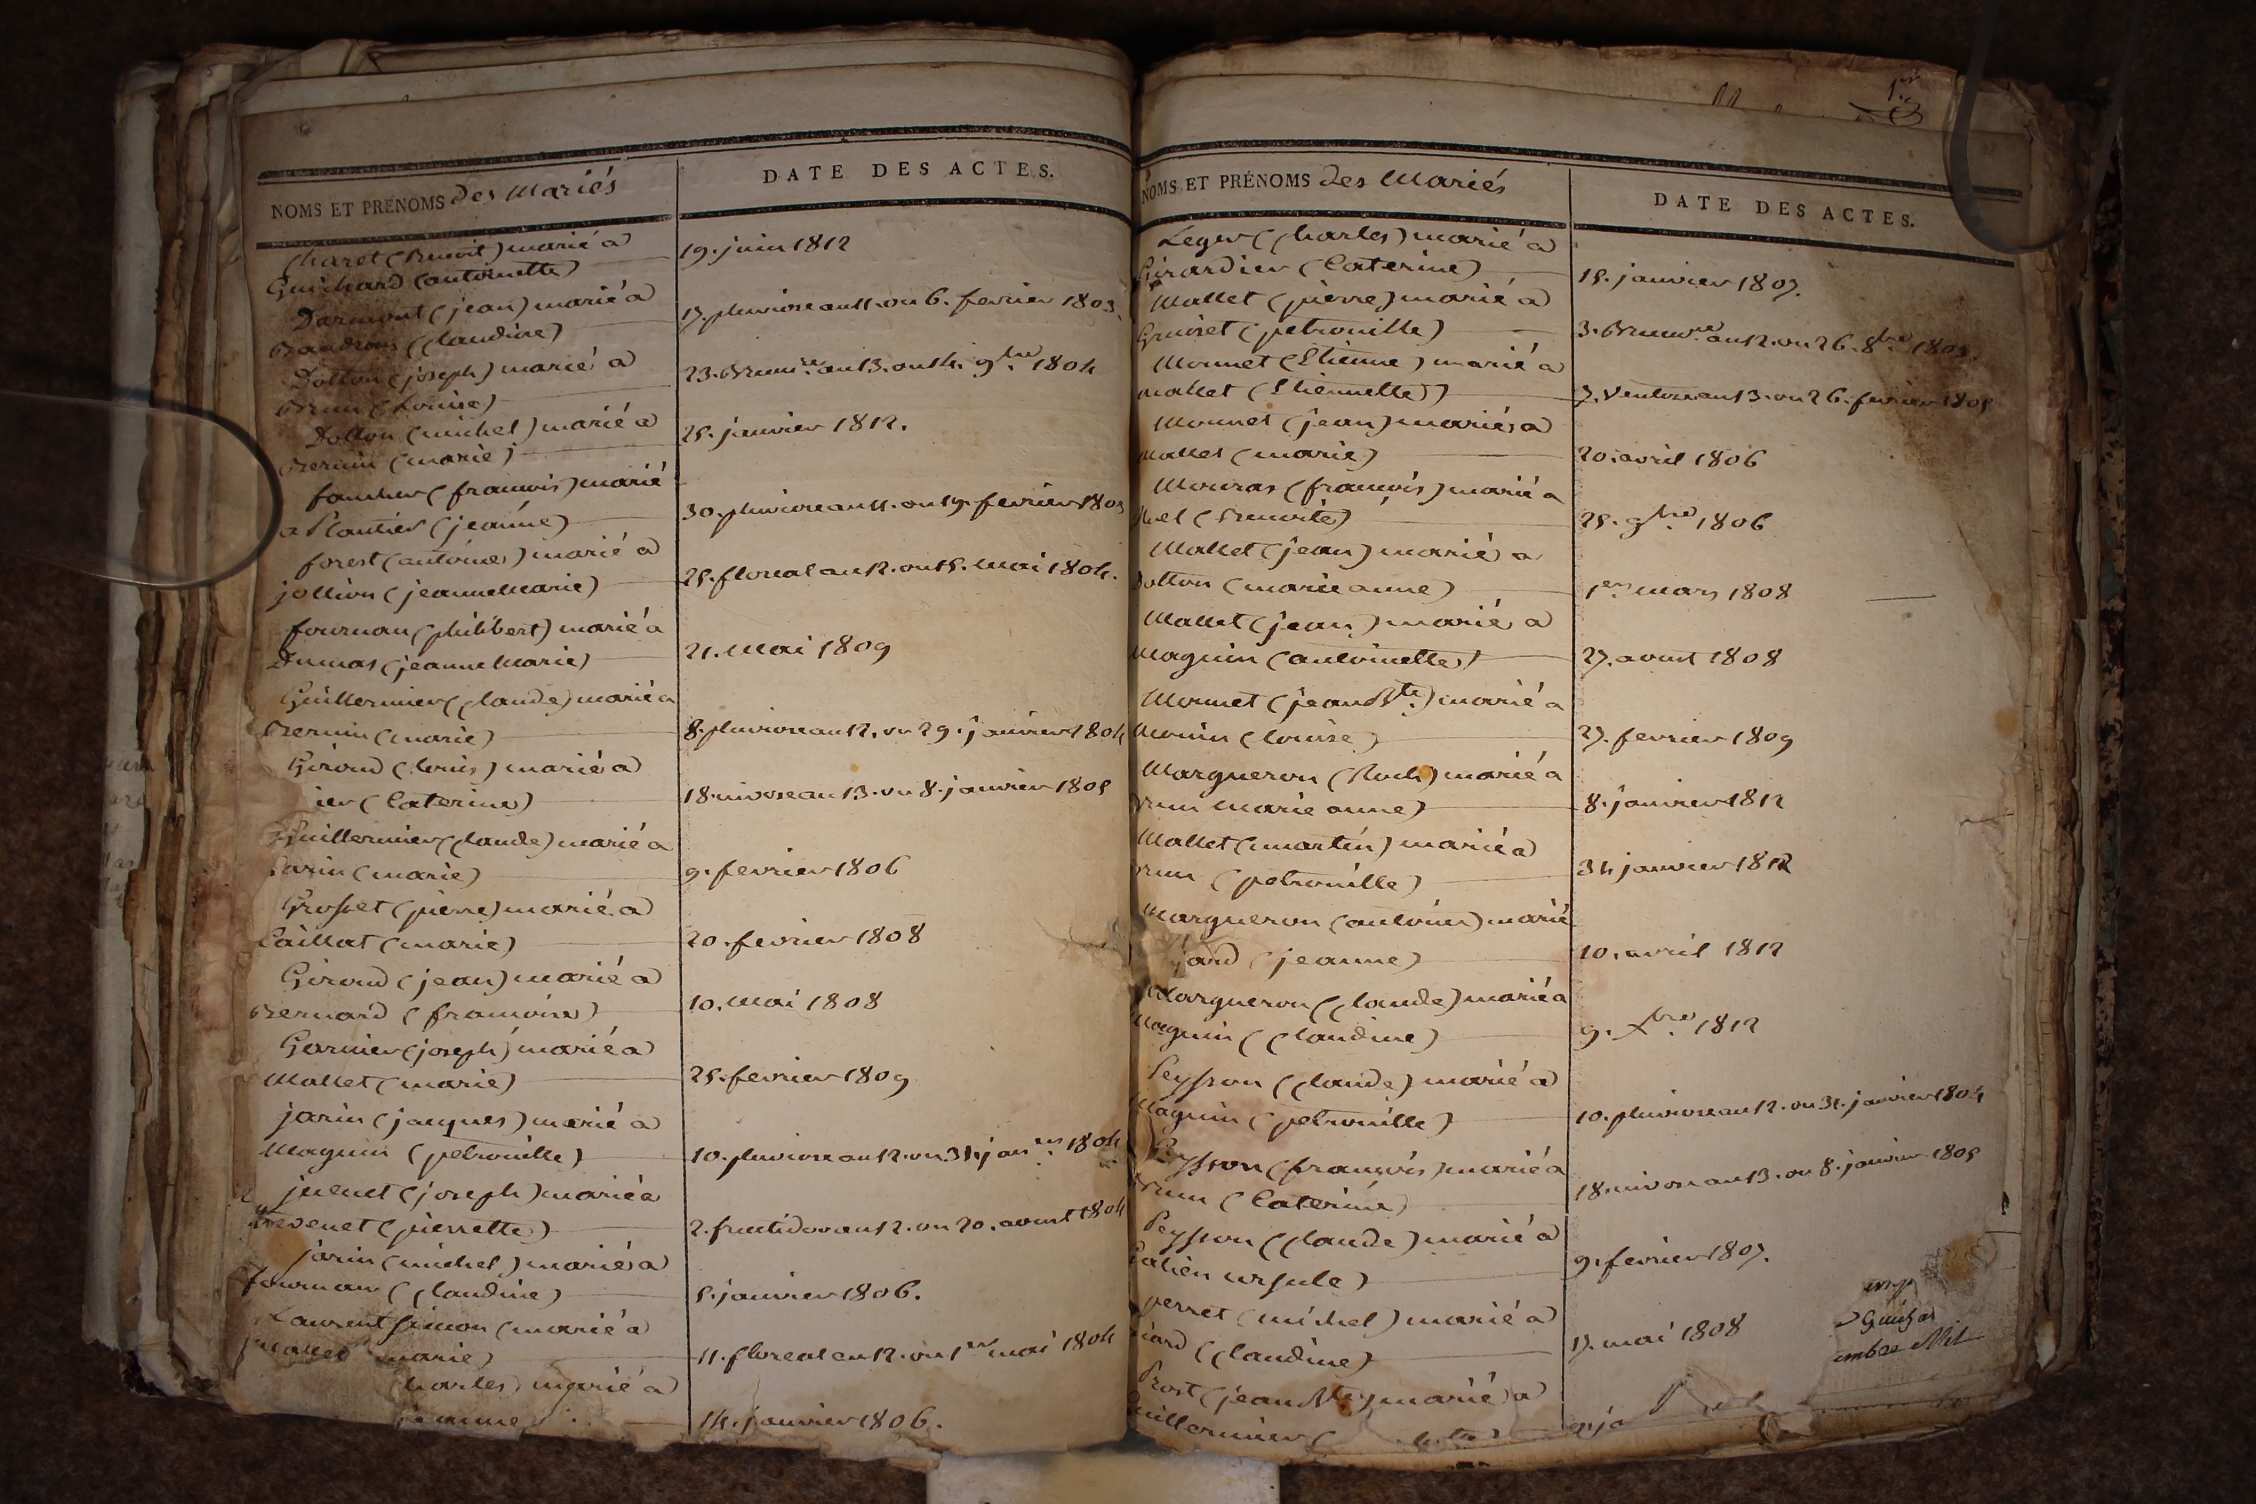 NOMS ET PRÉNOMS des Mariés
DATE DES ACTES.
Charet (Benoit) marié a
Guichard (antoinette)
19. juin 1812
Darmont (jean) marié a
Baudrou (Claudine)
17. pluviose an 11. ou 6. fevrier 1803.
Dotton (joseph) marié a
Brun (Louise)
23. Brum.re an 13. ou 14. 9bre 1804
Dotton (michel) marié a
Bernin (marie)
25. janvier 1812.
faucher (francois) marié
a Plantier (jeanne)
30. pluviose an 11. ou 19. fevrier 1803
forest (antoine) marié a
jollion (jeanne Marie)
25. floreal an 12. ou 15. Mai 1804.
fournau (philibert) marié a
Dumas (jeanne Marie)
21. Mai 1809
Guillermier (Claude) marié a
Bernin (marie)
8. pluviose an 12. ou 29. janvier 1804
Giroud (Louis) marié a
ier (Caterine)
18. nivose an 13. ou 8. janvier 1805
Guillermier (Claude) marié a
Carin (marie)
9. fevrier 1806
Grosset (pierre) marié a
Caillat (marie)
20. fevrier 1808
Giroud (jean) marié a
Bernard (francoise)
10. Mai 1808
Garnier (joseph) marié a
Mallet (marie)
25. fevrier 1809
jarin (jacques) marié a
Maguin (petronille)
10. pluviose an 12. ou 31. janer 1804
juenet (joseph) marié a
Trevenet (pierrette)
2. fructidor an 12. ou 20. aoust 1804
jarin (michel) marié a
fournau (Claudine)
5. janvier 1806.
Laurent simon (marié a
Mallet marie)
11. floreal an 12. ou 1er mai 1804
Charles) marié a
14. janvier 1806.
NOMS ET PRÉNOMS des Mariés
DATE DES ACTES.
Leger (Charles) marié a
Girardier (Caterine)
15. janvier 1807.
Mallet (pierre) marié a
Gruiset (petronille)
3. Brum.re an 12. ou 26. 8bre 1803.
Monnet (Etienne) marié a
mallet (Etiennette)
7. Ventose an 13. ou 26. fevrier 1805
Monnet (jean) marié a
mallet (marie)
20. avril 1806
Mouras (francois) marié a
(Benoite)
25. 9bre 1806
Mallet (jean) marié a
Dotton (marie anne)
1er mars 1808
Mallet (jean) marié a
Maguin (antoinette)
27. aoust 1808
Monnet (jean Bte) marié a
Monin (Louise)
27. fevrier 1809
Margueron (Roch) marié a
Brun Marie anne)
8. janvier 1812
Mallet (martin) marié a
Brun (petronille)
34 janvier 1812
Margueron (antoine) marié
jard (jeanne)
10. avril 1812
Margueron (Claude) marié a
Maguin (Claudine)
9. Xbre 1812
Peysson (Claude) marié a
Maguin (petronille)
10. pluviose an 12. ou 31. janvier 1804
Peysson (françois) marié a
Brun (Caterine)
18. nivose an 13. ou 8. janvier 1805
Peysson (Claude) marié a
Galien ursule)
9. fevrier 1807.
perret (michel) marié a
(Claudine)
17. mai 1808
Prost (jean Bte) marié a
Guillermier (